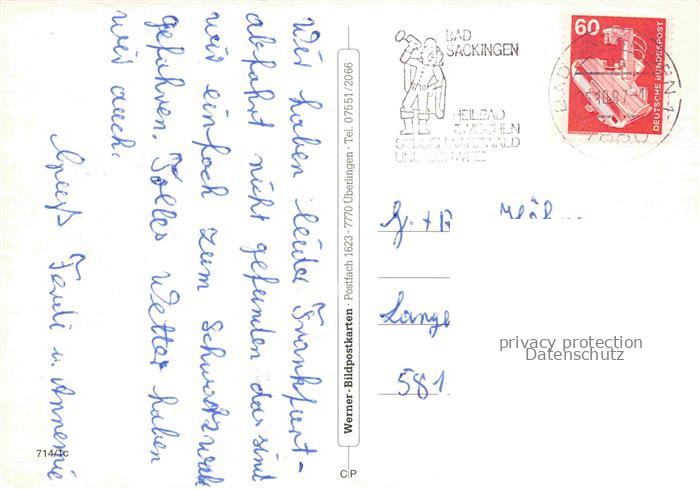 Wir haben leider Frankfurt-
abfahrt nicht gefunden da sind
wir einfach zum Schwartzwald
gefahren. Tolles Wetter haben
wir auch.
Gruß Ferdi u. Annemie
714/1c
Werner-Bildpostkarten · Postfach 1623 · 7770 Überlingen · Tel. 07551/2066
C P
BAD
SÄCKINGEN
HEILBAD
ZWISCHEN
SÜDSCHWARZWALD
UND SCHWEIZ
60
DEUTSCHE BUNDESPOST
BAD
7880
G. + A
Lange
581
privacy protection
Datenschutz